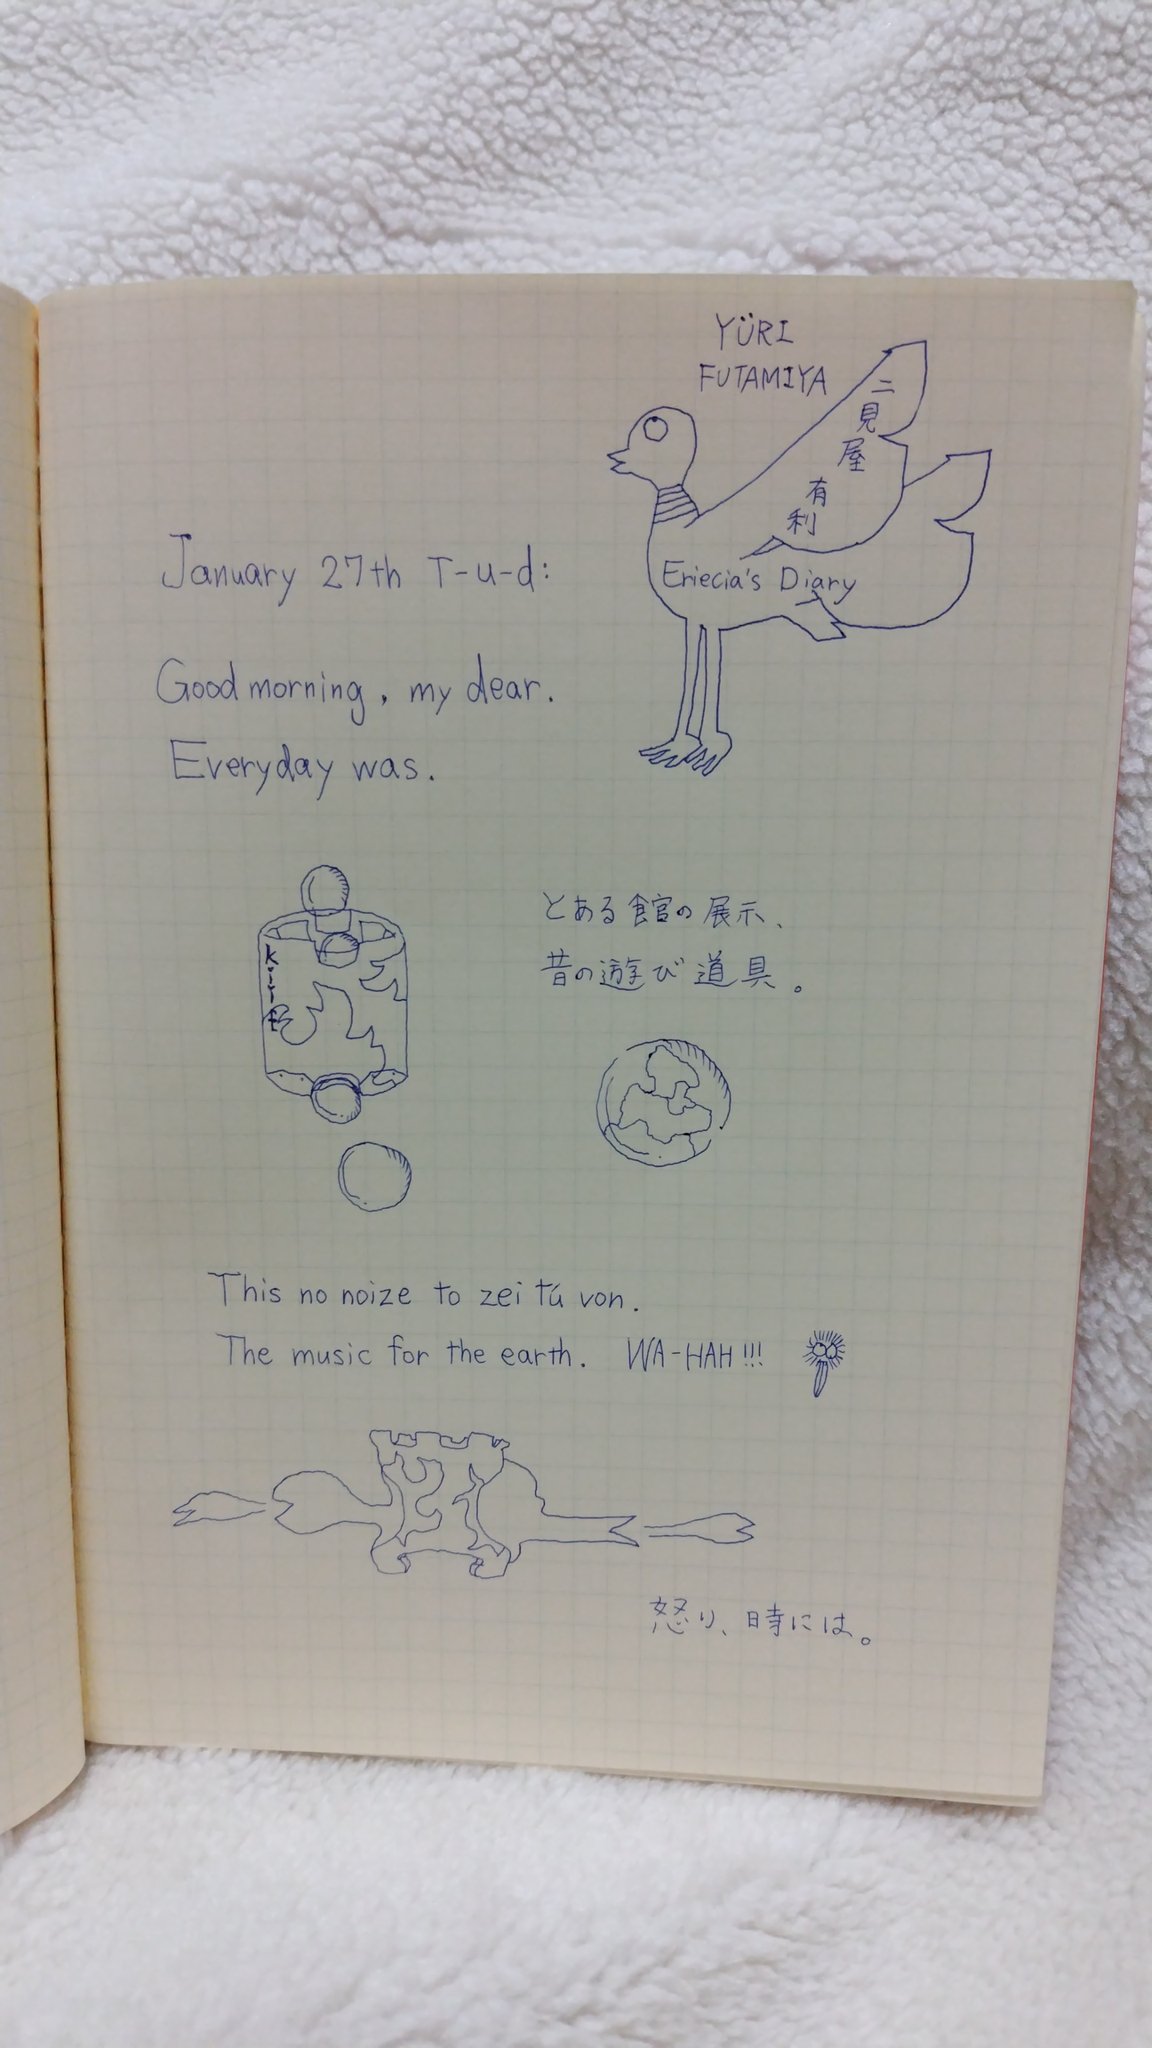 YÜRI
FUTAMIYA
二見屋
有利
Eriecia's Diary
January 27th T-u-d:
Good morning, my dear.
Everyday was.
とある館の展示、
昔の遊び道具。
This no noize to zei tú von.
The music for the earth. WA-HAH!!!
怒り、時には。